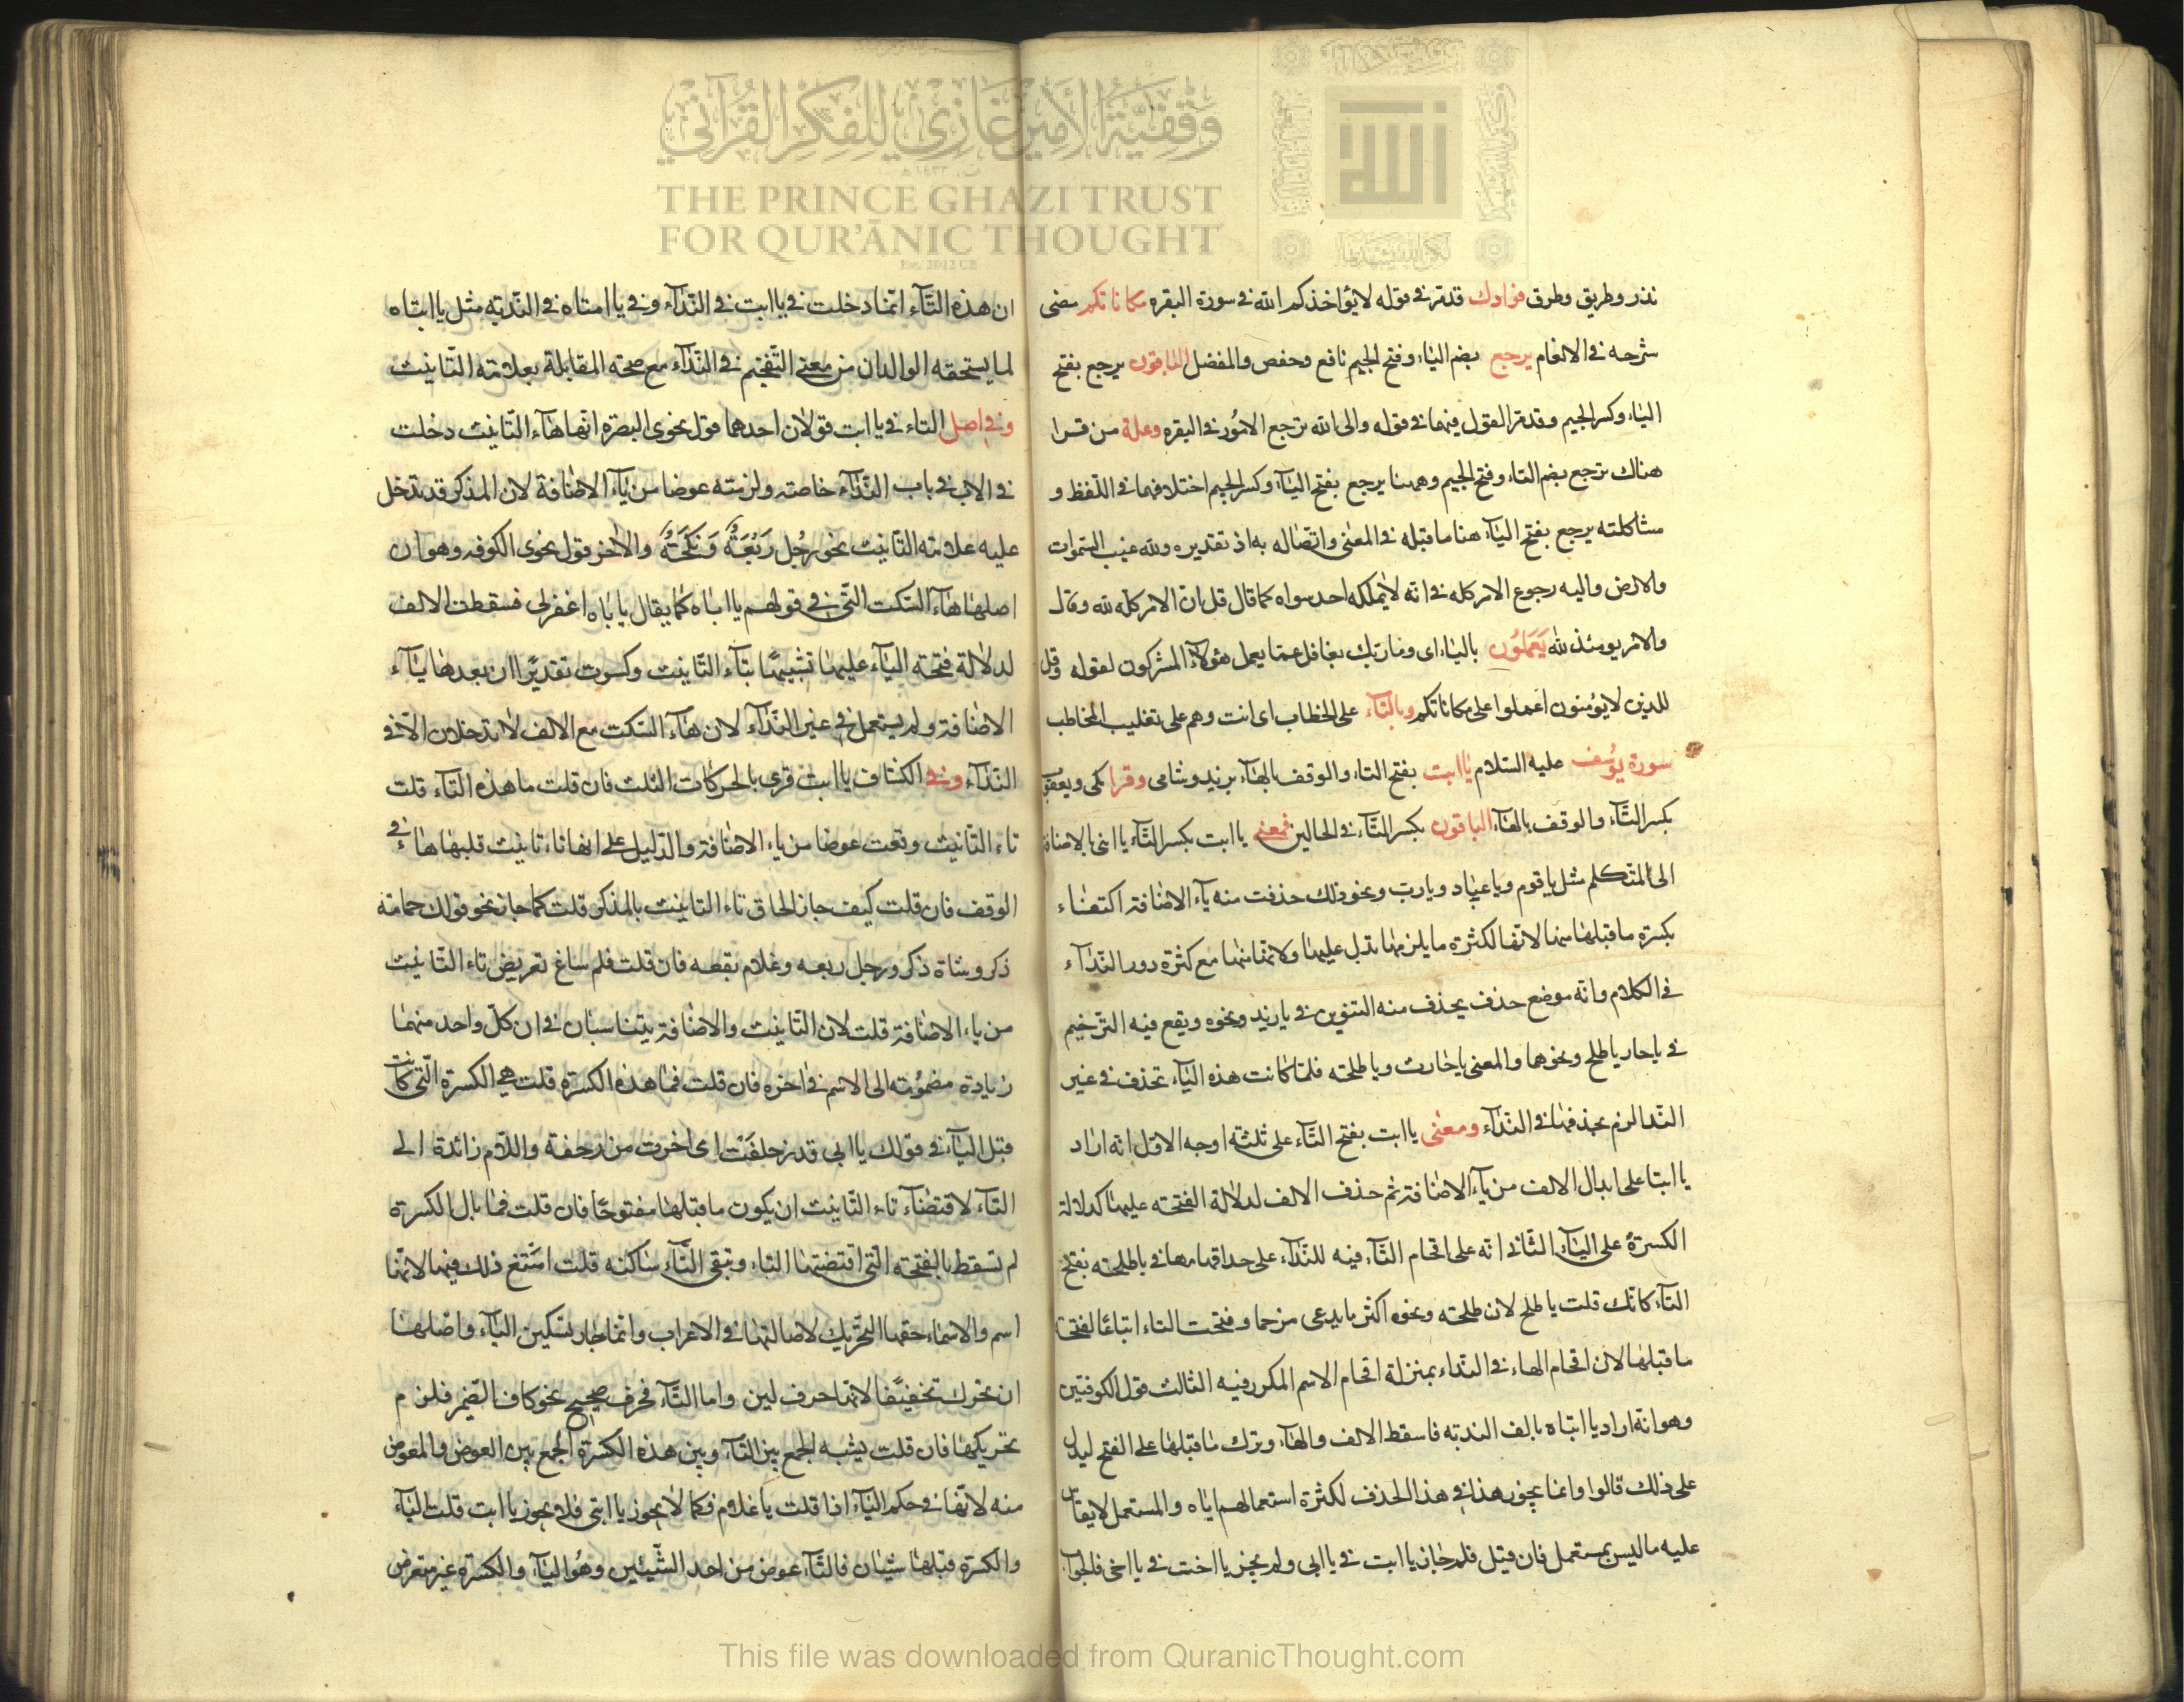 وقفية الأمير غازي للفكر القرآني
THE PRINCE GHAZI TRUST
FOR QUR'ĀNIC THOUGHT
Est. 2012 CE
نذر وطريق وطرق فؤادك قد مرّ في قوله لا يؤاخذكم الله في سورة البقره مكاناتكم مضى
شرحه في الانعام يرجع بضم الياء وفتح الجيم نافع وحفص والمفضل الباقون يرجع بفتح
الياء وكسر الجيم وقد مر القول فيهما في قوله والى الله ترجع الامُور في البقره وعلة من قرا
هناك ترجع بضم التاء وفتح الجيم وههنا يرجع بفتح اليآء وكسر الجيم اختلافهما في اللفظ و
مشاكلته يرجع بفتح اليآء هنا ما قبله في المعنى واتصاله به اذ تقديره ولله غيب السموات
والارض واليه رجوع الامر كله في انه لا يملكه احد سواه كما قال قل ان الامر كله لله وقال
والامر يومئذ لله يَعمَلُون بالياء اى وما ربك بغافل عما يعمل هؤلآء المشركون لقوله وقل
للذين لا يؤمنون اعملوا على مكاناتكم وبالتآء على الخطاب اى انت وهم على تغليب المخاطب
سورة يوُسف عليه السّلام يا ابت بفتح التاء والوقف بالهآء يزيد وشامى وقرا مكى ويعقوب
بكسر التّآء والوقف بالهآء الباقون بكسر التّآء في الحالين فمعنى يا ابت بكسر التّآء يا ابى بالاضافة
الى المتكلم مثل يا قوم ويا عباد ويا رب ونحو ذلك حذفت منه يآء الاضافة اكتفاء
بكسرة ما قبلها منها لانها لكثرة ما يلزمها تدل عليها ولانها مع كثرة دور النّدآء
في الكلام وانه موضع حذف يحذف منه التنوين في يا زيد ونحوه ويقع فيه الترخيم
في يا حار يا طلح ونحوهما والمعنى يا حارث ويا طلحة فلمّا كانت هذه اليآء تحذف في غير
النّدا لزم بحذفها في النّدآء ومعنى يا ابت بفتح التّآء على ثلثة اوجه الاول انه اراد
يا ابتا على ابدال الالف من يآء الاضافة ثم حذف الالف لدلالة الفتحة عليها كدلالة
الكسرة على اليآء الثانى انه على اقحام التّآء فيه للنّدآء على حد اقحامها في يا طلحة بفتح
التآء كانك قلت يا طلح لان طلحة ونحوه اكثر ما يدعى مرخما وفتحت التاء اتباعًا لفتحة
ما قبلها لان اقحام الهاء في النّداء بمنزلة اقحام الاسم المكرر فيه الثالث قول الكوفيين
وهو انه اراد يا ابتاه بالف الندبة فاسقط الالف والهآء وترك ما قبلها على الفتح ليدل
على ذلك قالوا وانما يجوز هذا في هذا الحذف لكثرة استعمالهم اياه والمستعمل لا يقاس
عليه ما ليس بمستعمل فان قيل فلم جاز يا ابت في يا ابى ولم يجز يا اخت في يا اخى فالجواب
ان هذه التّآء انّما دخلت في يا ابت في النّدآء وفي يا امتاه في النّدبة مثل يا ابتاه
لما يستحقه الوالدان من معنى التّفخيم في النّدآء مع صحة المقابلة بعلامة التّانيث
وفي اصل التاء في يا ابت قولان احدهما قول نحوى البصرة انّها هآء التّانيث دخلت
في الاب في باب النّدآء خاصة ولزمته عوضا من يآء الاضافة لان المذكر قد تدخل
عليه علامة التّانيث نحو رجُل رَبْعَةٌ وَنكَحَةٌ والآخر قول نحوى الكوفه وهو ان
اصلها هآء السّكت الّتى في قولهم يا اباه كما يقال يا باه اغفر لى فسقطت الالف
لدلالة فتحة اليآء عليها تشبيهًا بتآء التّانيث وكسرت تقديرًا ان بعدها يآء
الاضافة ولم يستعمل في غير النّدآء لان هآء السّكت مع الالف لا تدخلان الّا في
النّدآء وفي الكشاف يا ابت قرى بالحركات الثلث فان قلت ما هذه التّآء قلت
تاء التّانيث وقعت عوضا من ياء الاضافة والدّليل على انها تاء تانيث قلبها هاء في
الوقف فان قلت كيف جاز الحاق تاء التانيث بالمذكر قلت كما جاز نحو قولك حمامة
ذكر وشاة ذكر ورجل ربعه وغلام يفعه فان قلت فلم ساغ تعويض تاء التّانيث
من ياء الاضافة قلت لان التّانيث والاضافة يتناسبان في ان كلّ واحد منهما
زيادة مضمُومة الى الاسم في اخره فان قلت فما هذه الكسرة قلت هي الكسرة الّتى كانت
قبل اليآء في قولك يا ابى قد زحلفت اى اخرت من زحفة واللّام زائدة الى
التآء لاقتضآء تاء التّانيث ان يكون ما قبلها مفتوحًا فان قلت فما بال الكسرة
لم تسقط بالفتحة الّتى اقتضتها التاء وتبقى التّآء ساكنه قلت امتنع ذلك فيها لانها
اسم والاسماء حقها التحريك لاصالتها في الاعراب وانّما جاز تسكين اليآء واصلها
ان تحرك تخفيفًا لانها حرف لين واما التّآء فحرف صحيح نحو كاف الضّمير فلزم
تحريكها فان قلت يشبه الجمع بين التّآء وبين هذه الكسرة الجمع بين العوض والمعوض
منه لانّها في حكم اليآء اذا قلت يا غلام فكما لا يجوز يا ابتى فلا يجوز يا ابت قلت اليآء
والكسرة قبلها شيئان فالتّآء عوض من احد الشّيئين وهُو اليآء والكسرة غير متعرض
This file was downloaded from QuranicThought.com